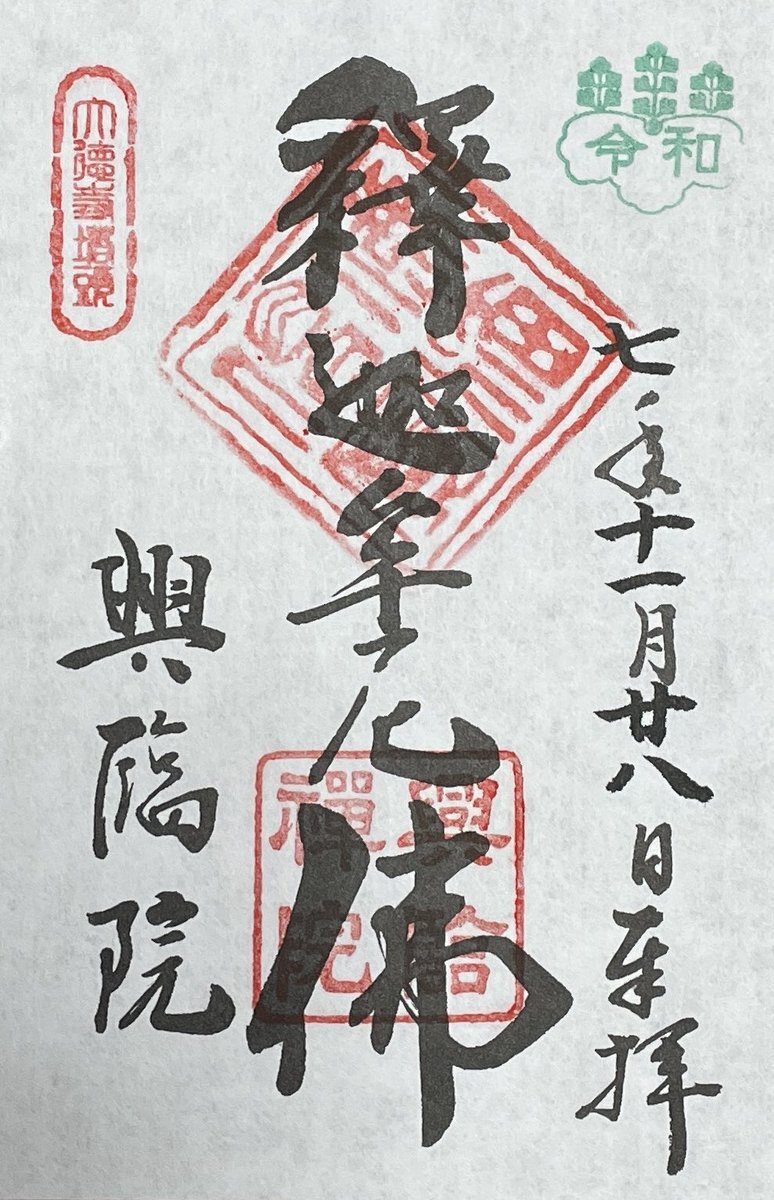 令和
七年十一月廿八日奉拝
釋迦牟尼佛
興臨
禪院
大徳寺塔頭
興臨院